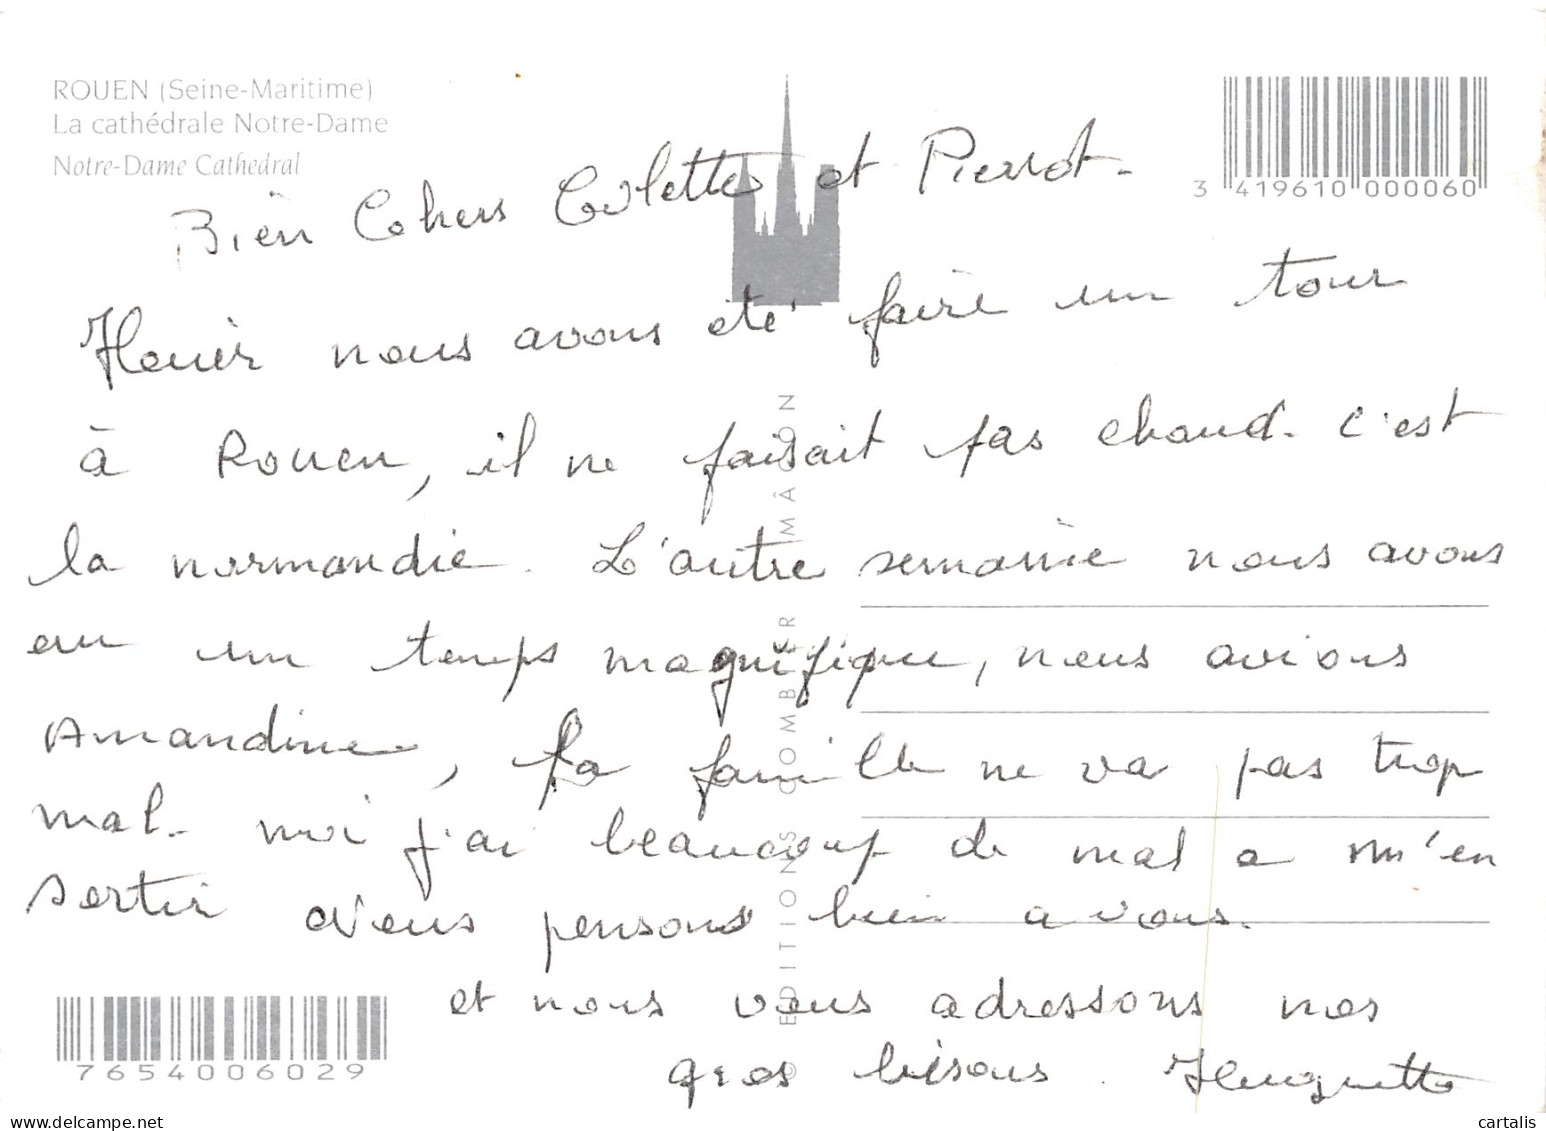 ROUEN (Seine-Maritime)
La cathédrale Notre-Dame
Notre-Dame Cathedral
3 419610 000060
Bien Cohers Colette et Pierrot.
Houier nous avons été faire un tour
à Rouen, il ne faisait pas chaud. c'est
la normandie. L'autre semaine nous avons
eu un temps magnifique, nous avions
Amandine, la famille ne va pas trop
mal. moi j'ai beaucoup de mal a m'en
sortir Nous pensons bien a vous.
et nous vous adressons nos
gros bisous. Huguette
EDITIONS COMBIER MÂCON
7654006029
cartalis
www.delcampe.net